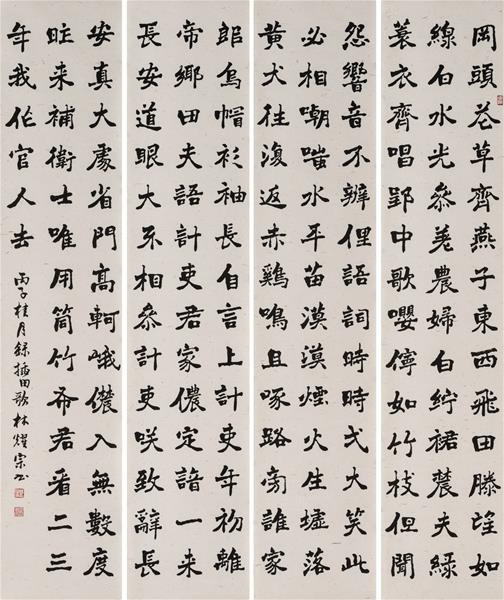 岡頭花草齊燕子東西飛田塍望如
線白水光參差農婦白紵裙農夫綠
蓑衣齊唱郢中歌嚶儜如竹枝但聞
怨響音不辨俚語詞時時弌大笑此
必相嘲嗤水平苗漠漠煙火生墟落
黃犬往復返赤鷄鳴且啄路旁誰家
郎烏帽衫袖長自言上計吏年初離
帝鄉田夫語計吏君家儂定諳一來
長安道眼大不相參計吏咲致辭長
安真大處省門高軻峨儂入無數度
昨來補衛士唯用筒竹布君看二三
年我作官人去
丙子桂月錄插田歌林耀宗書